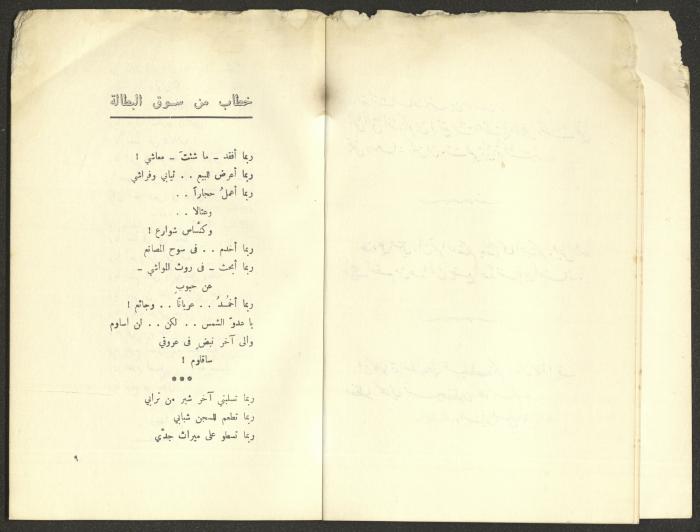 خطاب من سوق البطالة
ربما أفقد ـ ما شئتَ ـ معاشي !
ربما أعرض للبيع . . ثيابي وفراشي
ربما أعملُ حجاراً . .
وعتالا . .
وكنّاس شوارع !
ربما أخدم . . في سوح المصانع
ربما أبحث ـ في روث المواشي ـ
عن حبوبٍ
ربما أخمُدُ . . عريانًا . . وجائع !
يا عدوّ الشمس . . لكن . . لن اساوم
والى آخر نبضٍ في عروقي
ساقاوم !
***
ربما تسلبني آخر شبر من ترابي
ربما تطعم للسجن شبابي
ربما تسطو على ميراث جدّي
٩